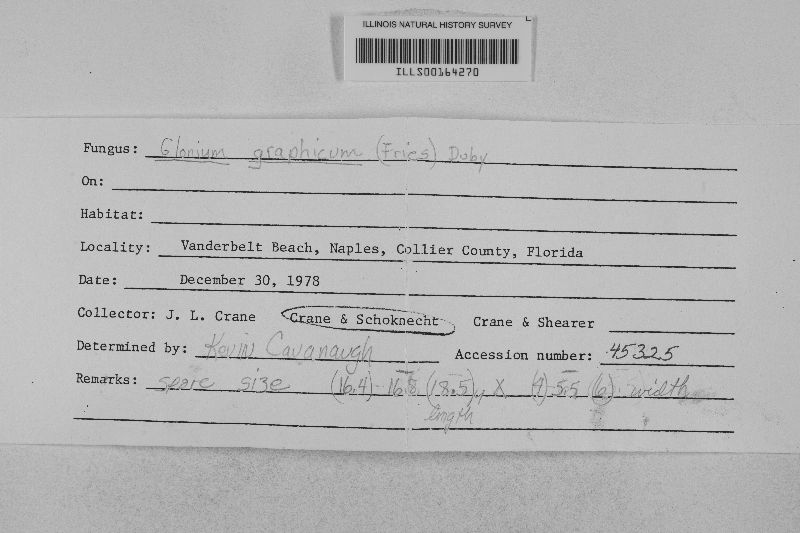 ILLINOIS NATURAL HISTORY SURVEY
ILLS00164270
Fungus: Glonium graphicum (Fries) Duby
On:
Habitat:
Locality: Vanderbelt Beach, Naples, Collier County, Florida
Date: December 30, 1978
Collector: J. L. Crane Crane & Schoknecht Crane & Shearer
Determined by: Kevin Cavanaugh Accession number: 45325
Remarks: spore size (16.4) - 16.8 (18.5) X (4) 5.5 (6) width
length